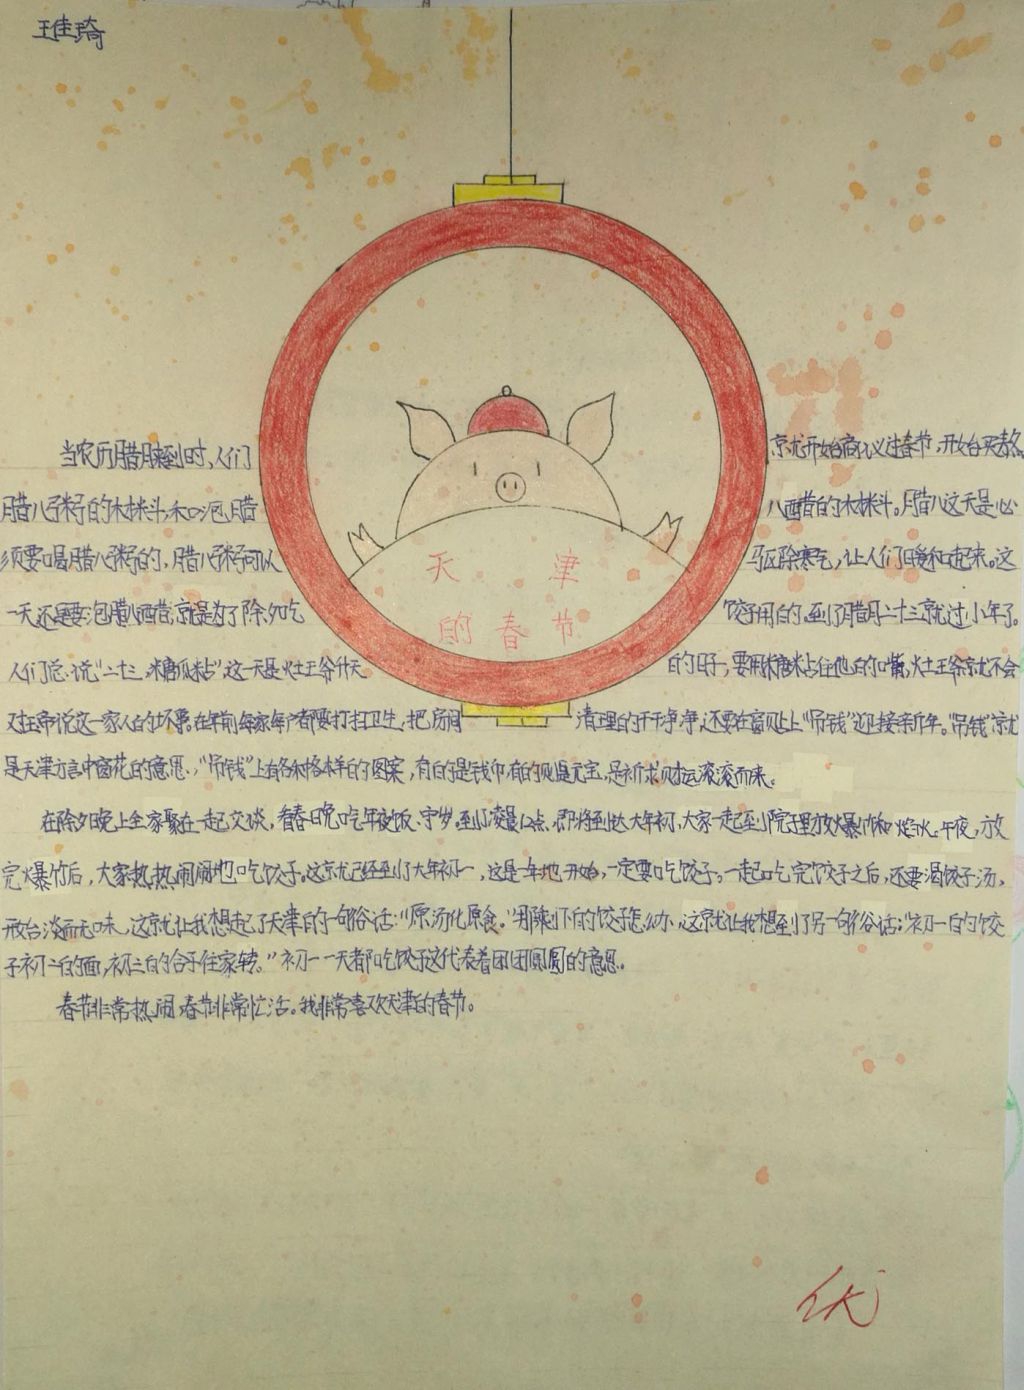 王佳琦
当农历腊月来到时，人们就开始商议过春节，开始买熬
腊八粥的材料和泡腊八醋的材料。腊八这天是必
须要喝腊八粥的，腊八粥可以驱除寒气，让人们暖和起来。这
一天还是要泡腊八醋，就是为了除夕吃饺子用的，到了腊月二十三就过小年了。
人们总说“二十三，糖瓜粘”这一天是灶王爷升天的日子，要用糖粘住他的嘴，灶王爷就不会
对玉帝说这一家人的坏事。在年前每家每户都要打扫卫生，把房间清理的干干净净，还要在窗贴上“吊钱”迎接新年。“吊钱”就
是天津方言中窗花的意思，“吊钱”上有各种各样的图案，有的是钱币，有的则是元宝，是祈求财运滚滚而来。
在除夕晚上全家聚在一起交谈，看春晚，吃年夜饭，守岁。到了凌晨12点，即将到达大年初一，大家一起到小院子里放爆竹和焰火。午夜，放
完爆竹后，大家热热闹闹地吃饺子。这就已经到了大年初一，这是一年地开始，一定要吃饺子。一起吃完饺子之后，还要渴饺子汤，
汤淡而无味，这就让我想起了天津的一句俗话：“原汤化原食。”那剩下的饺子怎么办，这就让我想到了另一句俗话：“初一的饺
子初二的面，初三的合子往家转。”初一一天都吃饺子这代表着团团圆圆的意思。
春节非常热闹，春节非常忙活。我非常喜欢天津的春节。
天津
的春节
优